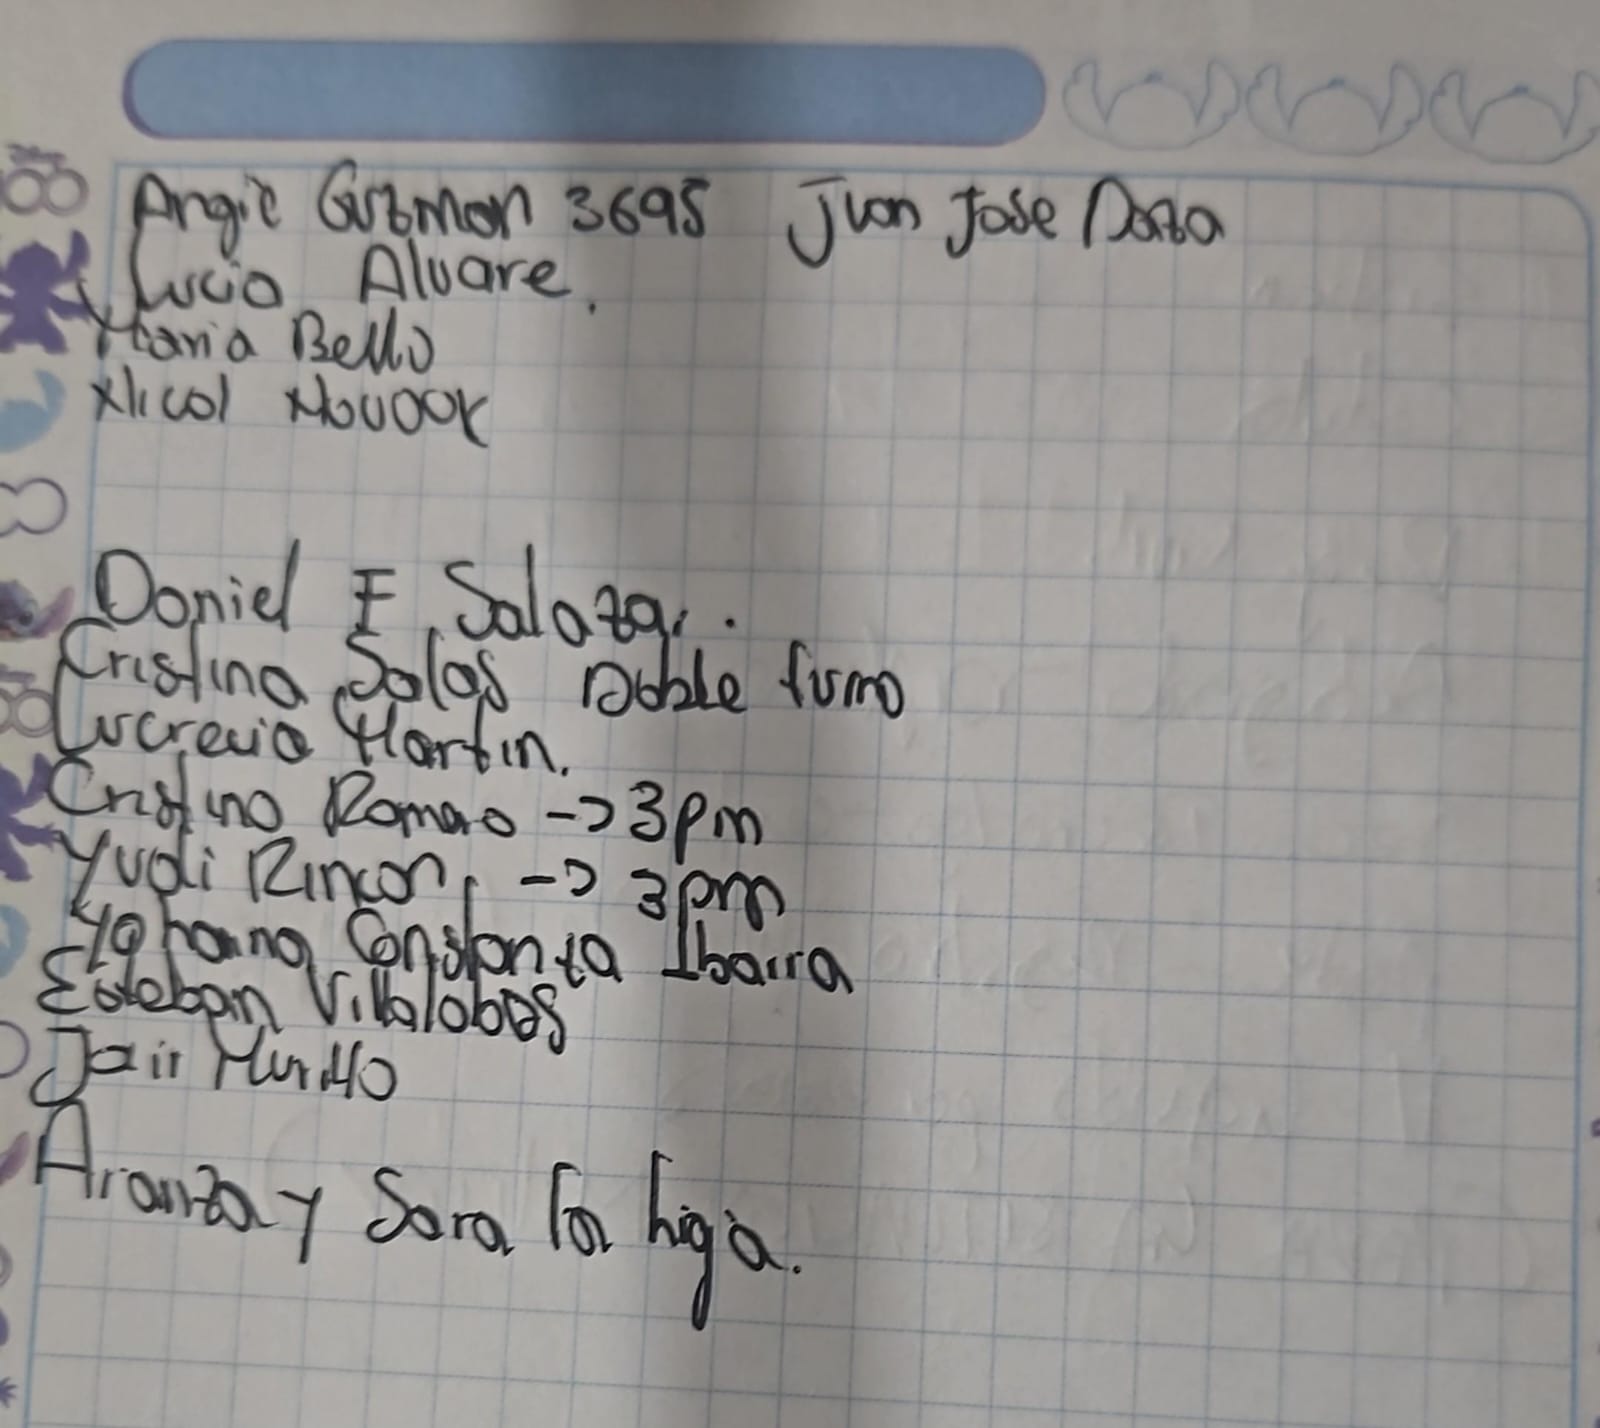 Angie Guzman 3695 Juan Jose Daza
Lucia Alvare.
Maria Bello
Nicol
Daniel F Salazar.
Cristina Salas Doble turno
Lucrecia Martin.
Cristina Romero -> 3pm
Yudi Rincon -> 3pm
Yohanna Constanza Ibarra
Esteban Villalobos
Jair Murillo
Aranza y Sara La higa.